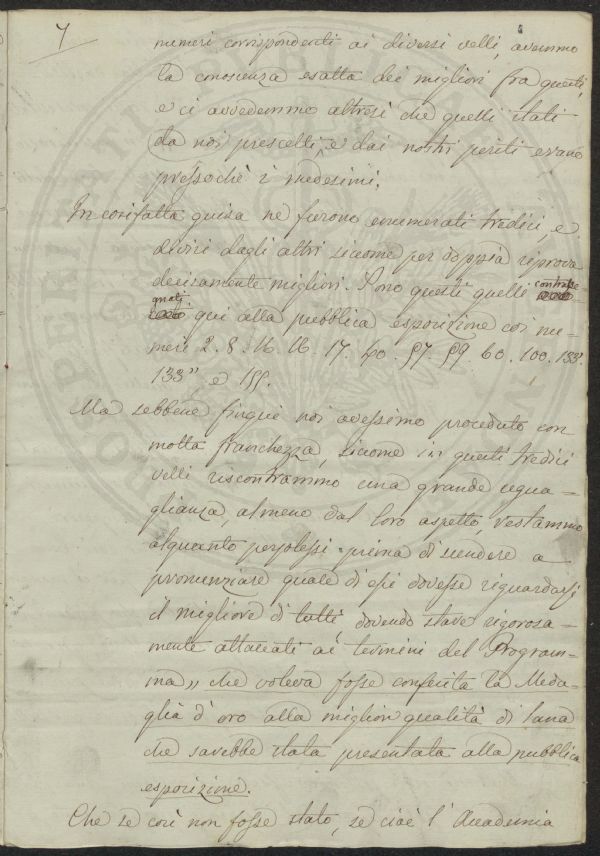 7
numeri corrispondenti ai diversi velli, avemmo
la conoscenza esatta dei migliori fra questi,
e ci avvedemmo altresì che quelli stati
da noi prescelti, e dai nostri periti erano
pressochè i medesimi.
In cosifatta guisa ne furono enumerati tredici, e
divisi dagli altri siccome per doppia riprova
decisamente migliori. Sono questi quelli contrasse
gnati qui alla pubblica esposizione coi nu-
meri 2. 8. 16. 16. 17. 40. 57. 59. 60. 100. 133'.
133" e 155.
Ma sebbene finquì noi avessimo proceduto con
molta franchezza, siccome in questi tredici
velli riscontrammo una grande egua-
glianza, almeno dal loro aspetto, restammo
alquanto perplessi prima di scendere a
pronunziare quale di essi dovesse riguardarsi
il migliore di tutti dovendo stare rigorosa-
mente attaccati ai termini del Program-
ma „ che voleva fosse conferita la Meda-
glia d'oro alla miglior qualità di lana
che sarebbe stata presentata alla pubblica
esposizione.
Che se così non fosse stato, se cioè l'Accademia